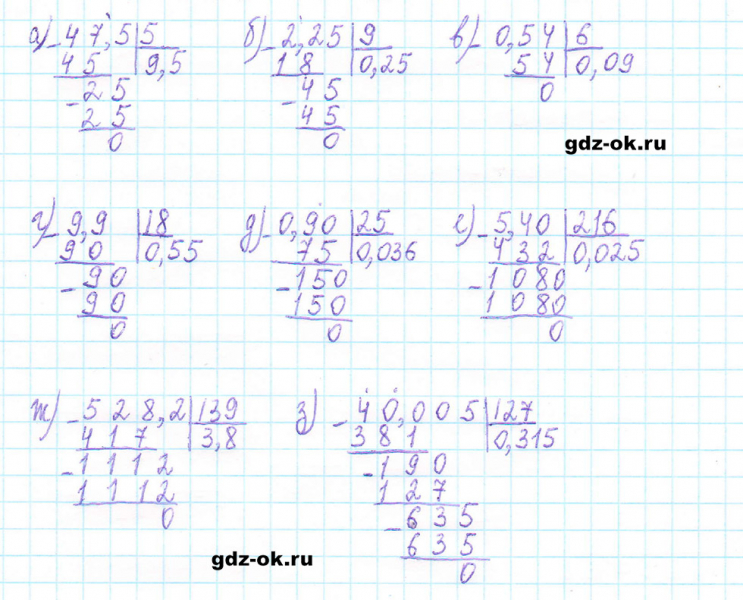 а) - 47,5 | 5    б) - 2,25 | 9    в) - 0,54 | 6
45 | 9,5    18 | 0,25    54 | 0,09
- 25    - 45    0
25    45
0    0
gdz-ok.ru
г) - 9,9 | 18    д) - 0,90 | 25    е) - 5,40 | 216
90 | 0,55    75 | 0,036    432 | 0,025
- 90    - 150    - 1080
90    150    1080
0    0    0
ж) - 528,2 | 139    з) - 40,005 | 127
417 | 3,8    381 | 0,315
- 1112    - 190
1112    127
0    - 635
635
0
gdz-ok.ru